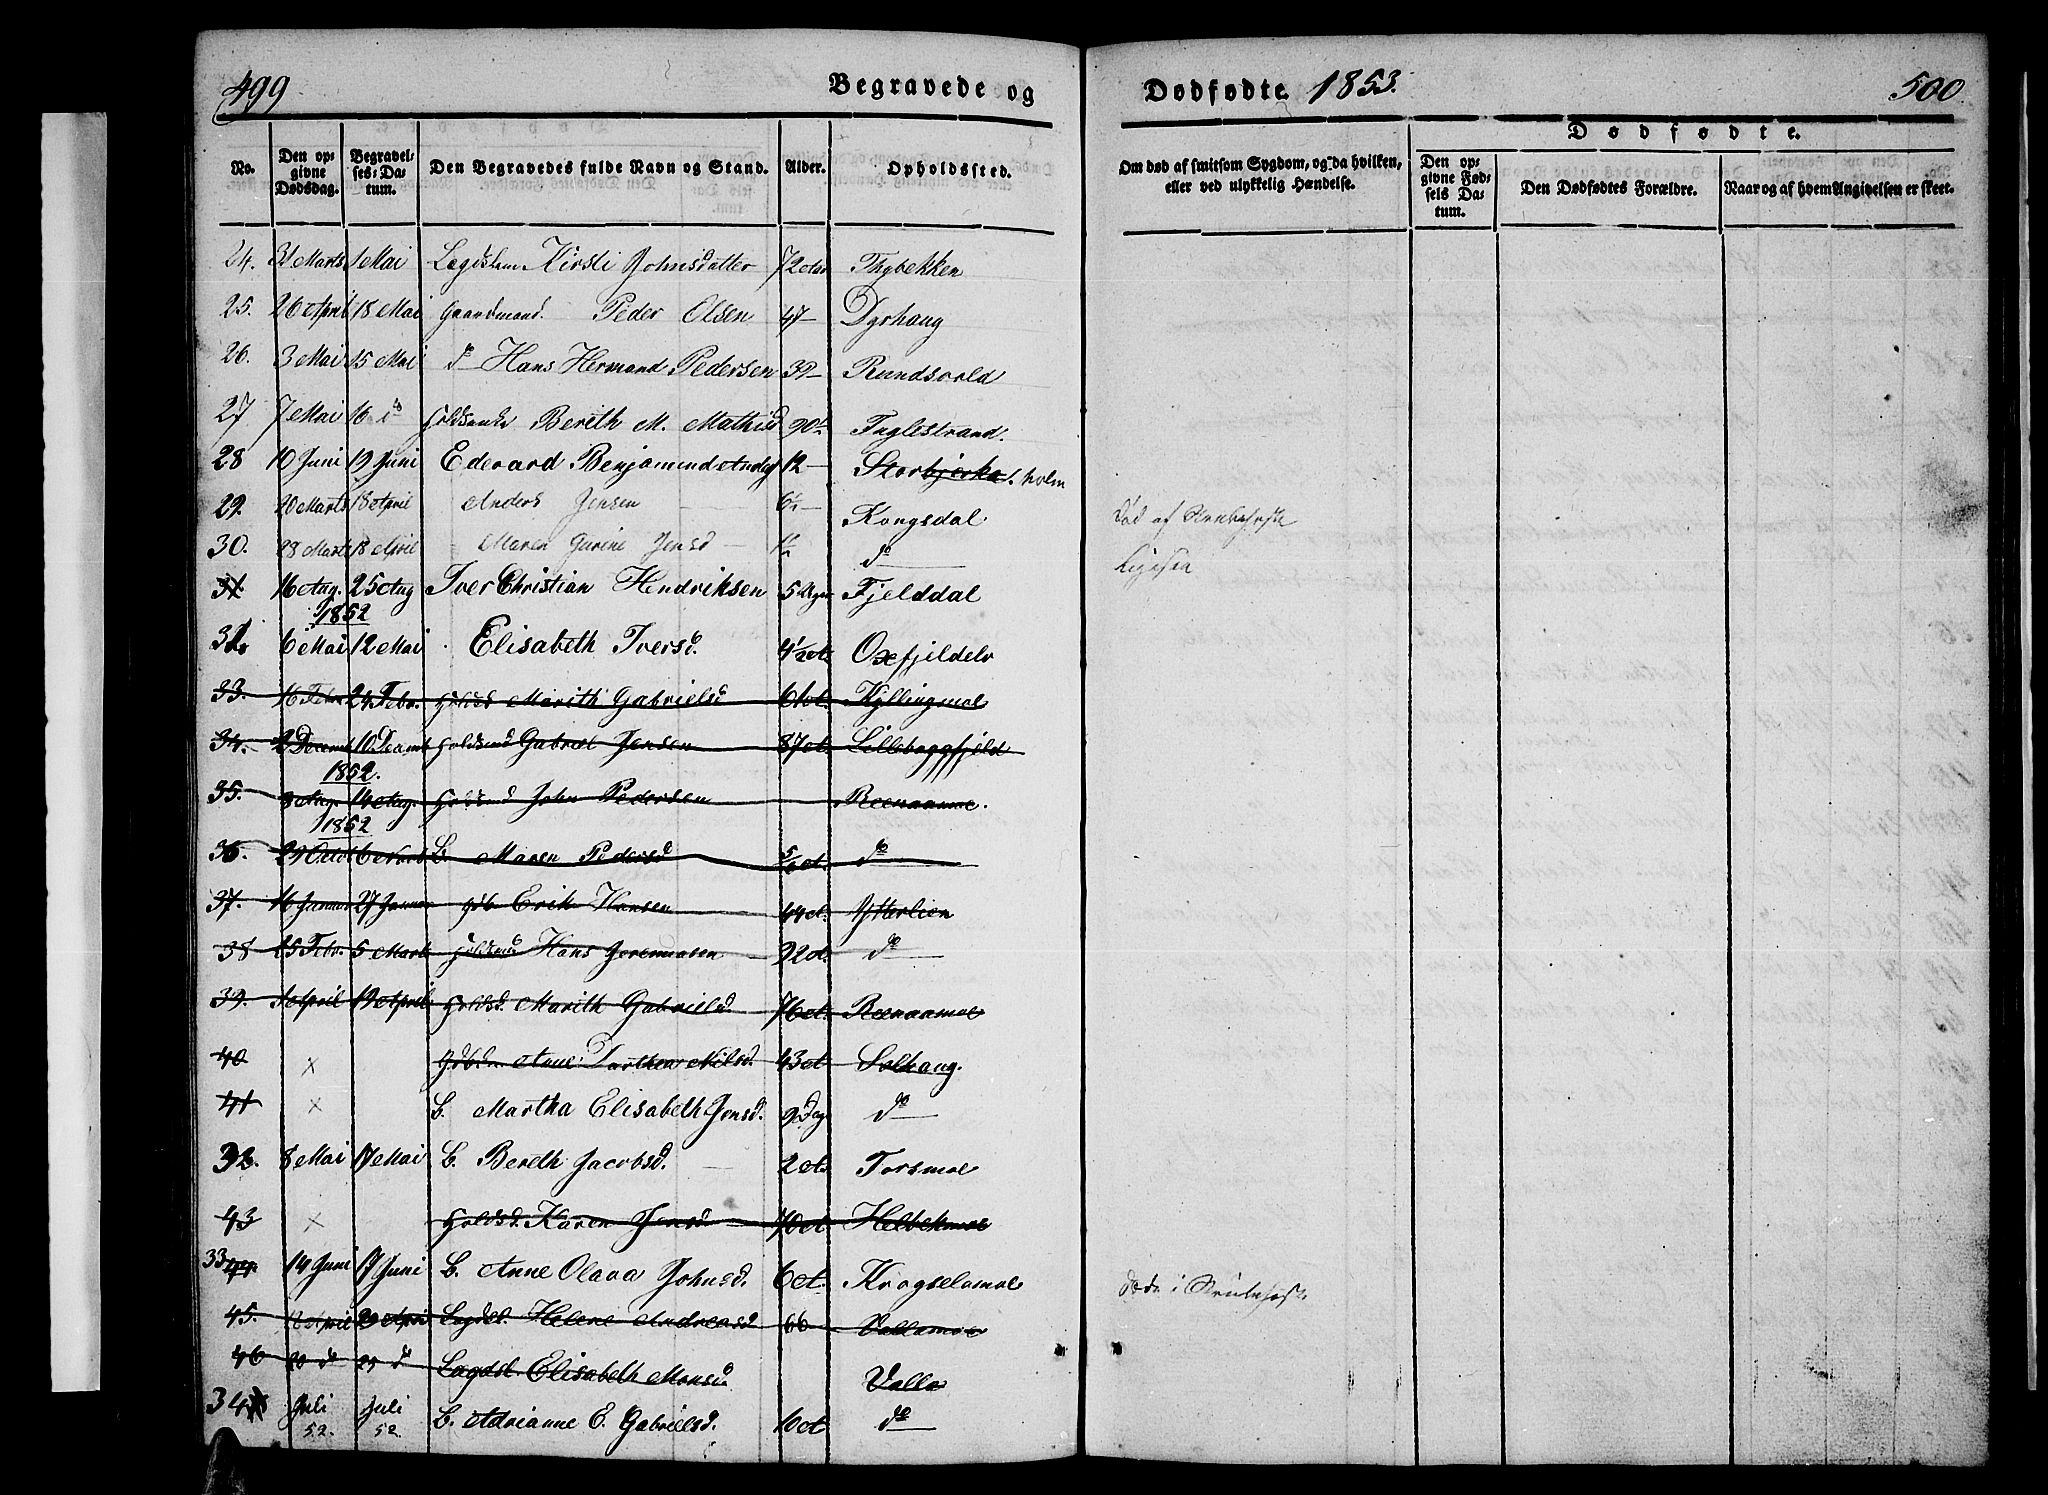 499
Begravede og
No. Den opgivne Dødsdag. Begravelses-Datum. Den Begravedes fulde Navn og Stand. Alder. Opholdssted.
24. 31 Marts 1 Mai Lægdslem Kirsti Johnsdatter 72 Aar Thybekken
25. 26 April 18 Mai Gaardmand. Peder Olsen 47 — Dyrhaug
26. 3 Mai 15 Mai do Hans Hermand Pedersen 39 — Rundsvold
27 7 Mai 16 do Bereth M. Mathisd 90 Fuglestrand.
28 10 Juni 19 Juni Edevard Benjamind 12 — Storbjerka holm
29. 20 Marts 18 April Anders Jensen — Kongsdal
30. 28 Marts 18 April Maren Gurine Jensd — do
31 16 Aug. 25 Aug Iver Christian Hendriksen 5 Uger Fjelddal
1852
6 Mai 12 Mai Elisabeth Iversd. 4 1/2 A. Oxfjeldelv
33. 16 Febr 24 Febr. Marith Gabrielsd 61 A. Kyllingmoe
34. 2 Decemb 10 Decemb Gabriel Jensen 87 A. Lillebaggfjeld
1852.
35. 8 Aug. 14 Aug. John Pedersen Reenaamoe.
1852
36. 29 Octob 6 Novb B. Maren Pedersd 5/6 A. do
37. 16 Januar 27 Januar Gdb Erik Hansen 44 A. Ytterlien
38 25 Febr. 5 Marts Hans Jeremiasen 22 A. do
39. 4 April 19 April Holdsd. Marith Gabrielsd. 76 A. Reenaamoe
40 × Anne Dorthea Nilsd. 43 A Solhaug.
41 × B. Martha Elisabeth Jensd. 9 Dag do
32. 8 Mai 17 Mai B. Bereth Jacobsd. — 2 A. Forsmoe
43 × Holdsd. Karen Jensd 70 A. Helbekmoe
33 44. 14 Juni 17 Juni B. Anne Olava Johnsd. 6 A. Krogselvmoe
45. 12 April 20 April Lægdsl. Helene Andreasd 66 Vallamoe
46 20 do 25 do Lægdsl. Elisabeth Monsd. Valla
34 Juli 52. Juli 52 B. Adrianne E. Gabrielsd. do
Dødfødte 1853.
500
Om død af smitsom Sygdom, og da hvilken, eller ved ulykkelig Hændelse.
Dødfødte.
Den opgivne Fødsels Datum. Den Dødfødtes Forældre. Naar og af hvem Angivelsen er skeet.
Død af
Ligesaa
Døde i